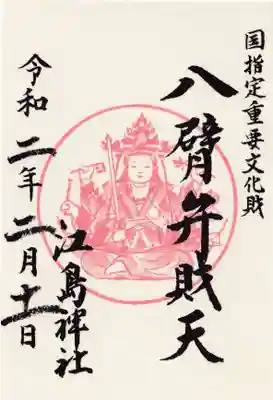 国指定重要文化財
八臂弁財天
江島神社
令和二年二月十一日